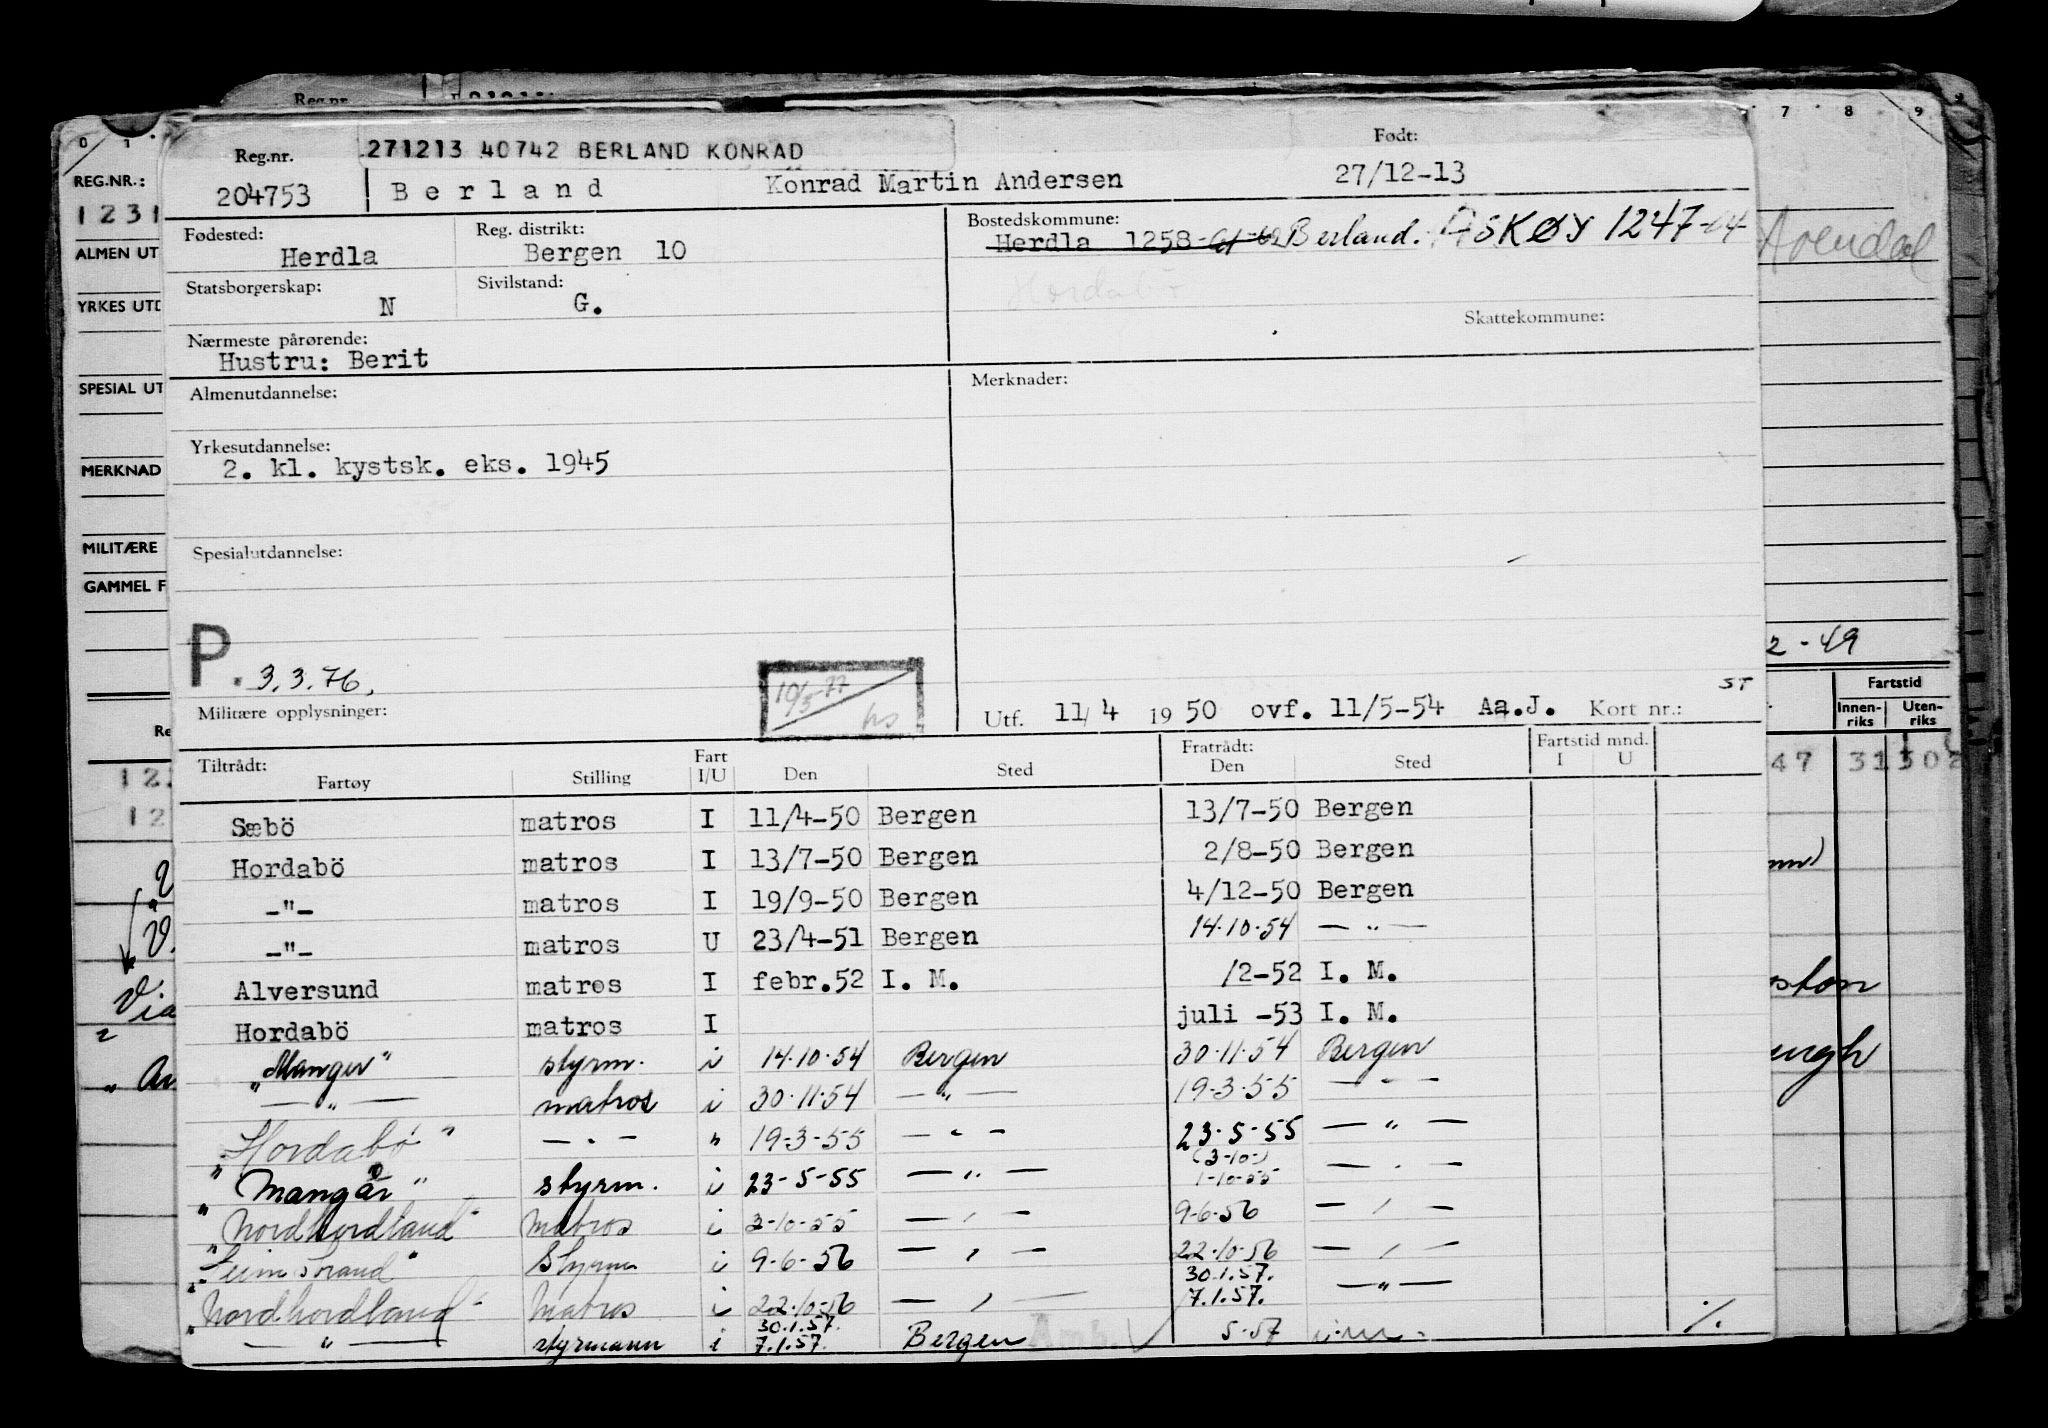 Reg.nr.
0 1 7 8 9
271213 40742 BERLAND KONRAD
Født:
REG.NR.:
204753 Berland Konrad Martin Andersen 27/12-13
1231
Fødested: Reg. distrikt: Bostedskommune:
Herdla Bergen 10 Herdla 1258 Berland. ASKØY 1247-04
ALMEN UT Arendal
Statsborgerskap: Sivilstand: Hordabö
N G.
YRKES UTD
Skattekommune:
Nærmeste pårørende:
Hustru: Berit
SPESIAL UT
Almenutdannelse: Merknader:
Yrkesutdannelse:
2. kl. kystsk. eks. 1945
MERKNAD
MILITÆRE
Spesialutdannelse:
GAMMEL F
P. 3.3.76.
10/5-77
hs
2-49
Militære opplysninger:
ST
Utf. 11/4 1950 ovf. 11/5-54 Aa.J. Kort nr.:
Fartstid
Innen-riks Uten-riks
Tiltrådt: Fart Fratrådt: Fartstid mnd.
Fartøy Stilling I/U Den Sted Den Sted I U
47 31302
Sæbö matros I 11/4-50 Bergen 13/7-50 Bergen
Hordabö matros I 13/7-50 Bergen 2/8-50 Bergen
-"- matros I 19/9-50 Bergen 4/12-50 Bergen
-"- matros U 23/4-51 Bergen 14.10.54 — " —
Alversund matros I febr.52 I. M. /2-52 I. M.
Hordabö matros I juli -53 I. M.
"Manger" styrm. i 14.10.54 Bergen 30.11.54 Bergen
— " — matros i 30.11.54 — " — 19-3-55 — " —
"Hordabø" — " — " 19-3-55 — " — 23-5-55 — " —
(3-10-)
"Mangår" styrm. i 23-5-55 — " — 1-10-55 — " —
"Nordhordland" Matros i 3-10-55 — " — 9-6-56 — " —
"Seimstrand" Styrm i 9-6-56 — " — 22-10-56 — " —
30.1.57.
"Nordhordland" Matros i 22-10-56 — " — 7.1.57. — " —
30.1.57.
— " — styrmann i 7.1.57. Bergen 5-57 i.m. %